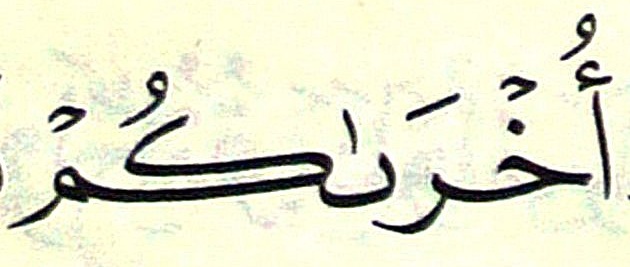 أُخْرَىٰكُمْ